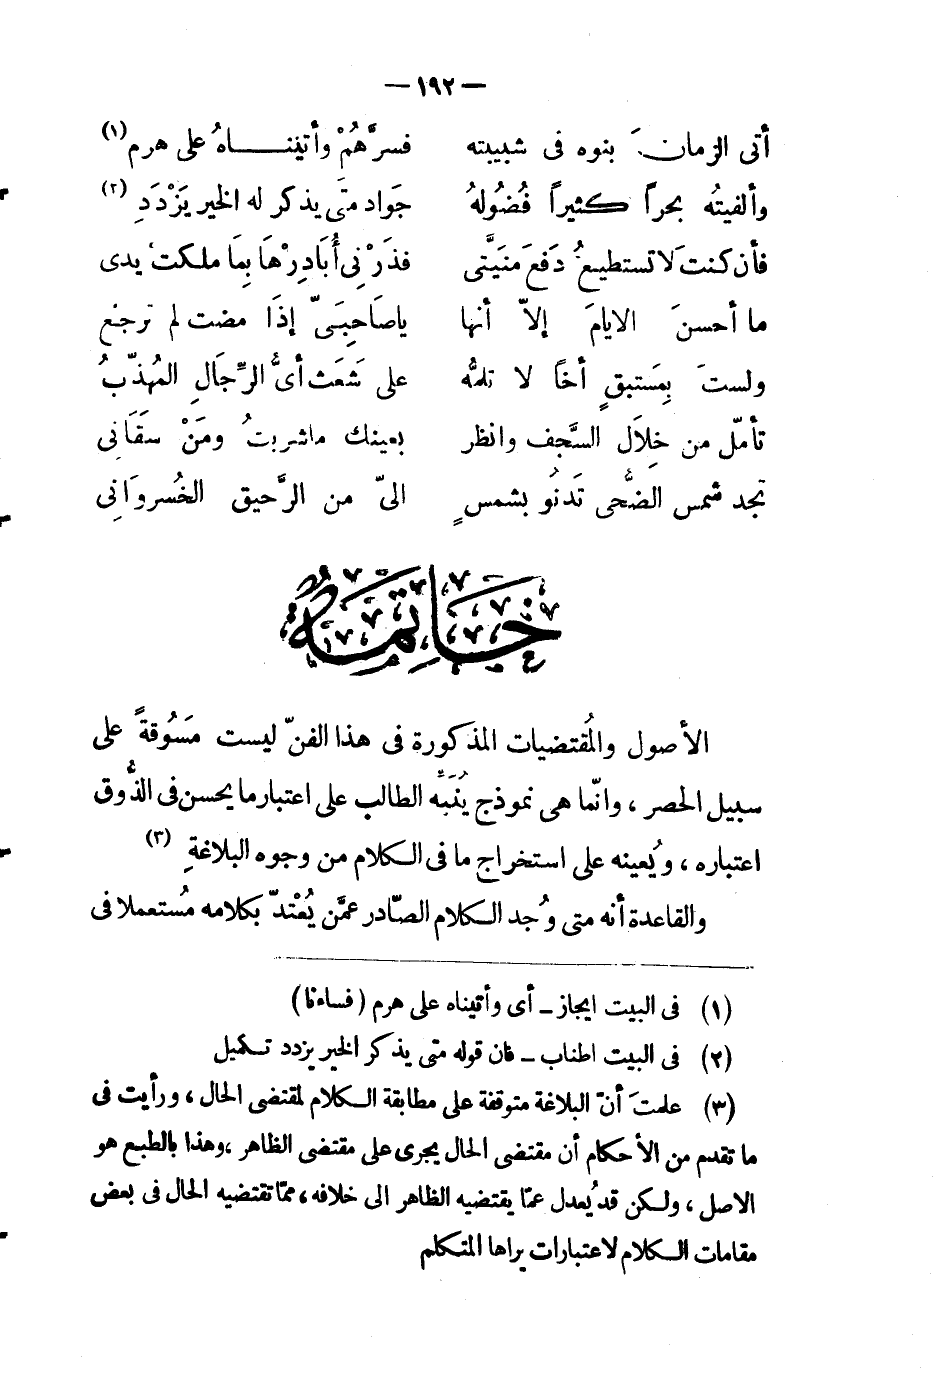 — ١٩٢ —
أتى الزمانَ بنوه فى شبيبته فسرَّهُمْ وأتينـــاهُ على هرم (١)
وألفيتُه بحراً كثيراً فُضُولهُ جَواد متَى يذكر له الخير يَزْدَدِ (٢)
فأن كنت لا تستطيعُ دَفعَ مَنيَّتى فذَرْنِى أُبَادِرْهَا بِمَا ملكت يدى
ما أحسنَ الايامَ إلاّ أنها ياصَاحِبَىّ إذَا مضت لم ترجع
ولستَ بِمَستبقٍ أخًا لا تلمُّه على شَعَث أىُّ الرِّجَالِ المُهذّبُ
تأمّل من خِلاَل السَّجف وانظر بعينك ماشربتُ ومَنْ سقَانِى
تجد شمس الضُّحى تَدنُو بشمسٍ الىّ من الرَّحيق الخُسروَانِى
خَاتِمَةٌ
الأصول والمُقتضيات المذكورة فى هذا الفنّ ليست مَسُوقةً على
سبيل الحصر ، وانّما هى نموذج يُنَبِّه الطالب على اعتبار ما يحسن فى الذُّوق
اعتباره ، ويُعينه على استخراج ما فى الكلام من وجوه البلاغةِ (٣)
والقاعدة أنه متى وُجد الكلام الصّادر عمَّن يُعْتدّ بكلامه مُستعملا فى
(١) فى البيت ايجاز ــ أى وأتيناه على هرم (فساءنا)
(٢) فى البيت اطناب ــ فان قوله متى يذكر الخير يزدد تكميل
(٣) علمتَ أنّ البلاغة متوقفة على مطابقة الكلام لمقتضى الحال ، ورأيت فى
ما تقدم من الأحكام أن مقتضى الحال يجرى على مقتضى الظاهر ،وهذا بالطبع هو
الاصل ، ولكن قد يُعدل عمّا يقتضيه الظاهر الى خلافه ، ممّا تقتضيه الحال فى بعض
مقامات الكلام لاعتبارات يراها المتكلم